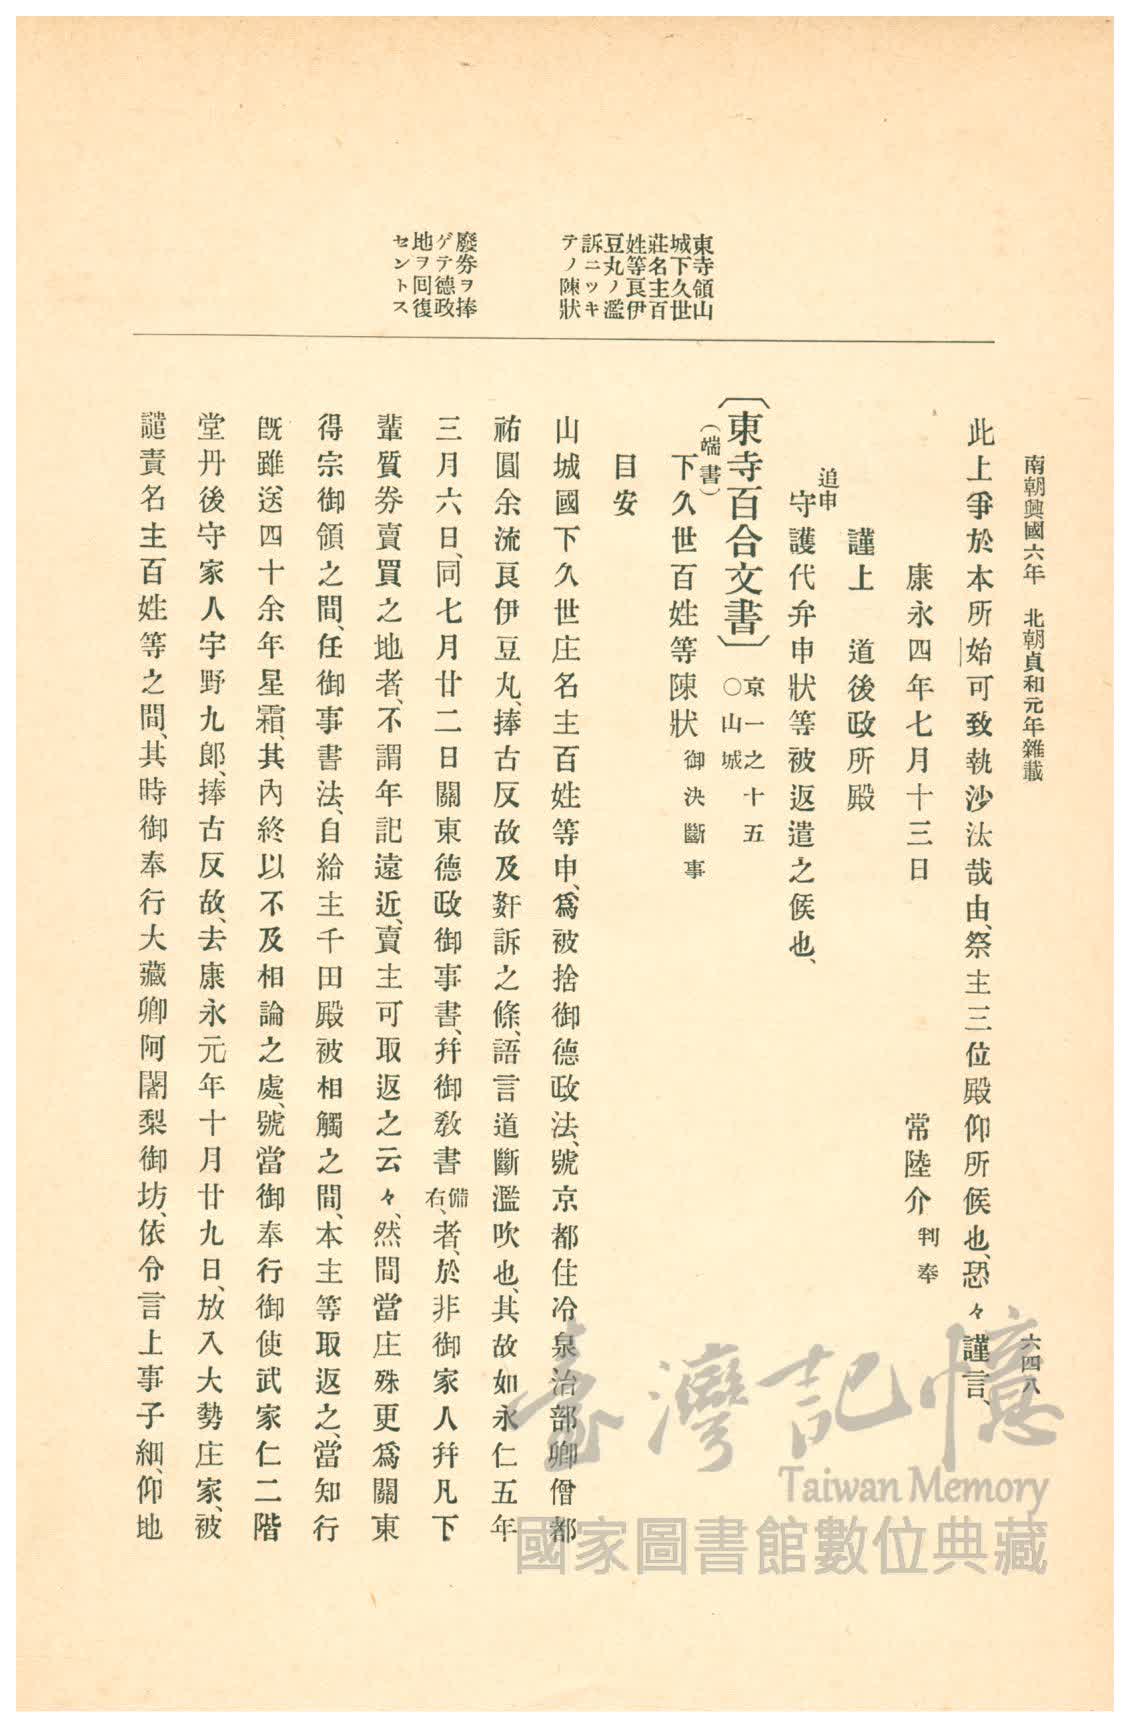 南朝興國六年　北朝貞和元年雜載
六四八
東寺領山
城下久世
莊名主百
姓等良伊
豆丸ノ濫
訴ニツキ
テノ陳狀
廢券ヲ捧
ゲテ德政
地ヲ回復
セントス
此上爭於本所始可致執沙汰哉由、祭主三位殿仰所候也、恐々謹言、
康永四年七月十三日　常陸介判奉
謹上　道後政所殿
追申
守護代弁申狀等被返遣之候也、
〔東寺百合文書〕京一之十五
○山城
（端書）
下久世百姓等陳狀御決斷事
目安
山城國下久世庄名主百姓等申、爲被捨御德政法、號京都住冷泉治部卿僧都
祐圓余流良伊豆丸、捧古反故及姧訴之條、語言道斷濫吹也、其故如永仁五年
三月六日、同七月廿二日關東德政御事書、幷御敎書備右、者、於非御家人幷凡下
輩質券賣買之地者、不謂年記遠近、賣主可取返之云々、然間當庄殊更爲關東
得宗御領之間、任御事書法、自給主千田殿被相觸之間、本主等取返之、當知行
旣雖送四十余年星霜、其內終以不及相論之處、號當御奉行御使武家仁二階
堂丹後守家人宇野九郞、捧古反故、去康永元年十月廿九日、放入大勢庄家、被
譴責名主百姓等之間、其時御奉行大藏卿阿闍梨御坊、依令言上事子細、仰地
臺灣記憶
Taiwan Memory
國家圖書館數位典藏